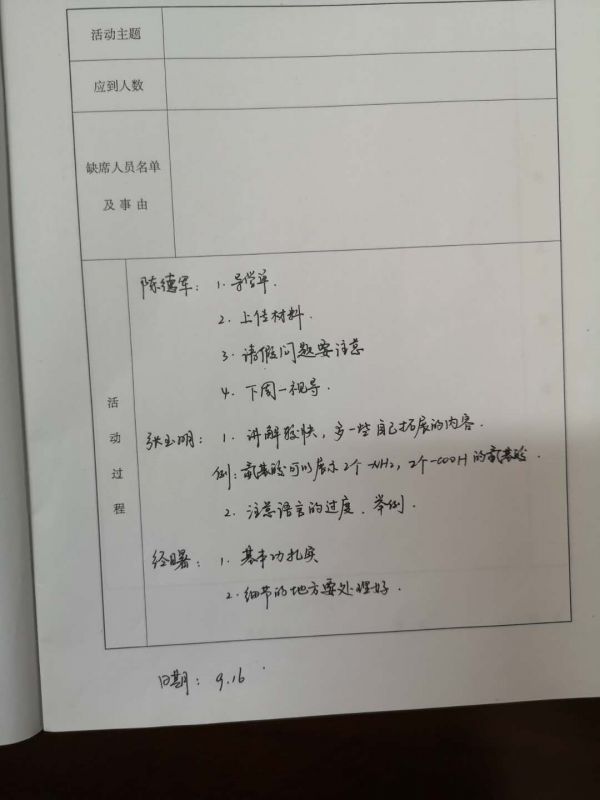 活动主题
应到人数
缺席人员名单
及事由
活动过程
陈德军：1. 导学单.
2. 上传材料.
3. 请假问题要注意
4. 下周一视导.
张玉明：1. 讲解较快，多一些自己拓展的内容.
例：氨基酸可以展示2个-NH2，2个-COOH的氨基酸.
2. 注意语言的过度、举例.
经曙：1. 基本功扎实
2. 细节的地方要处理好.
日期：9.16